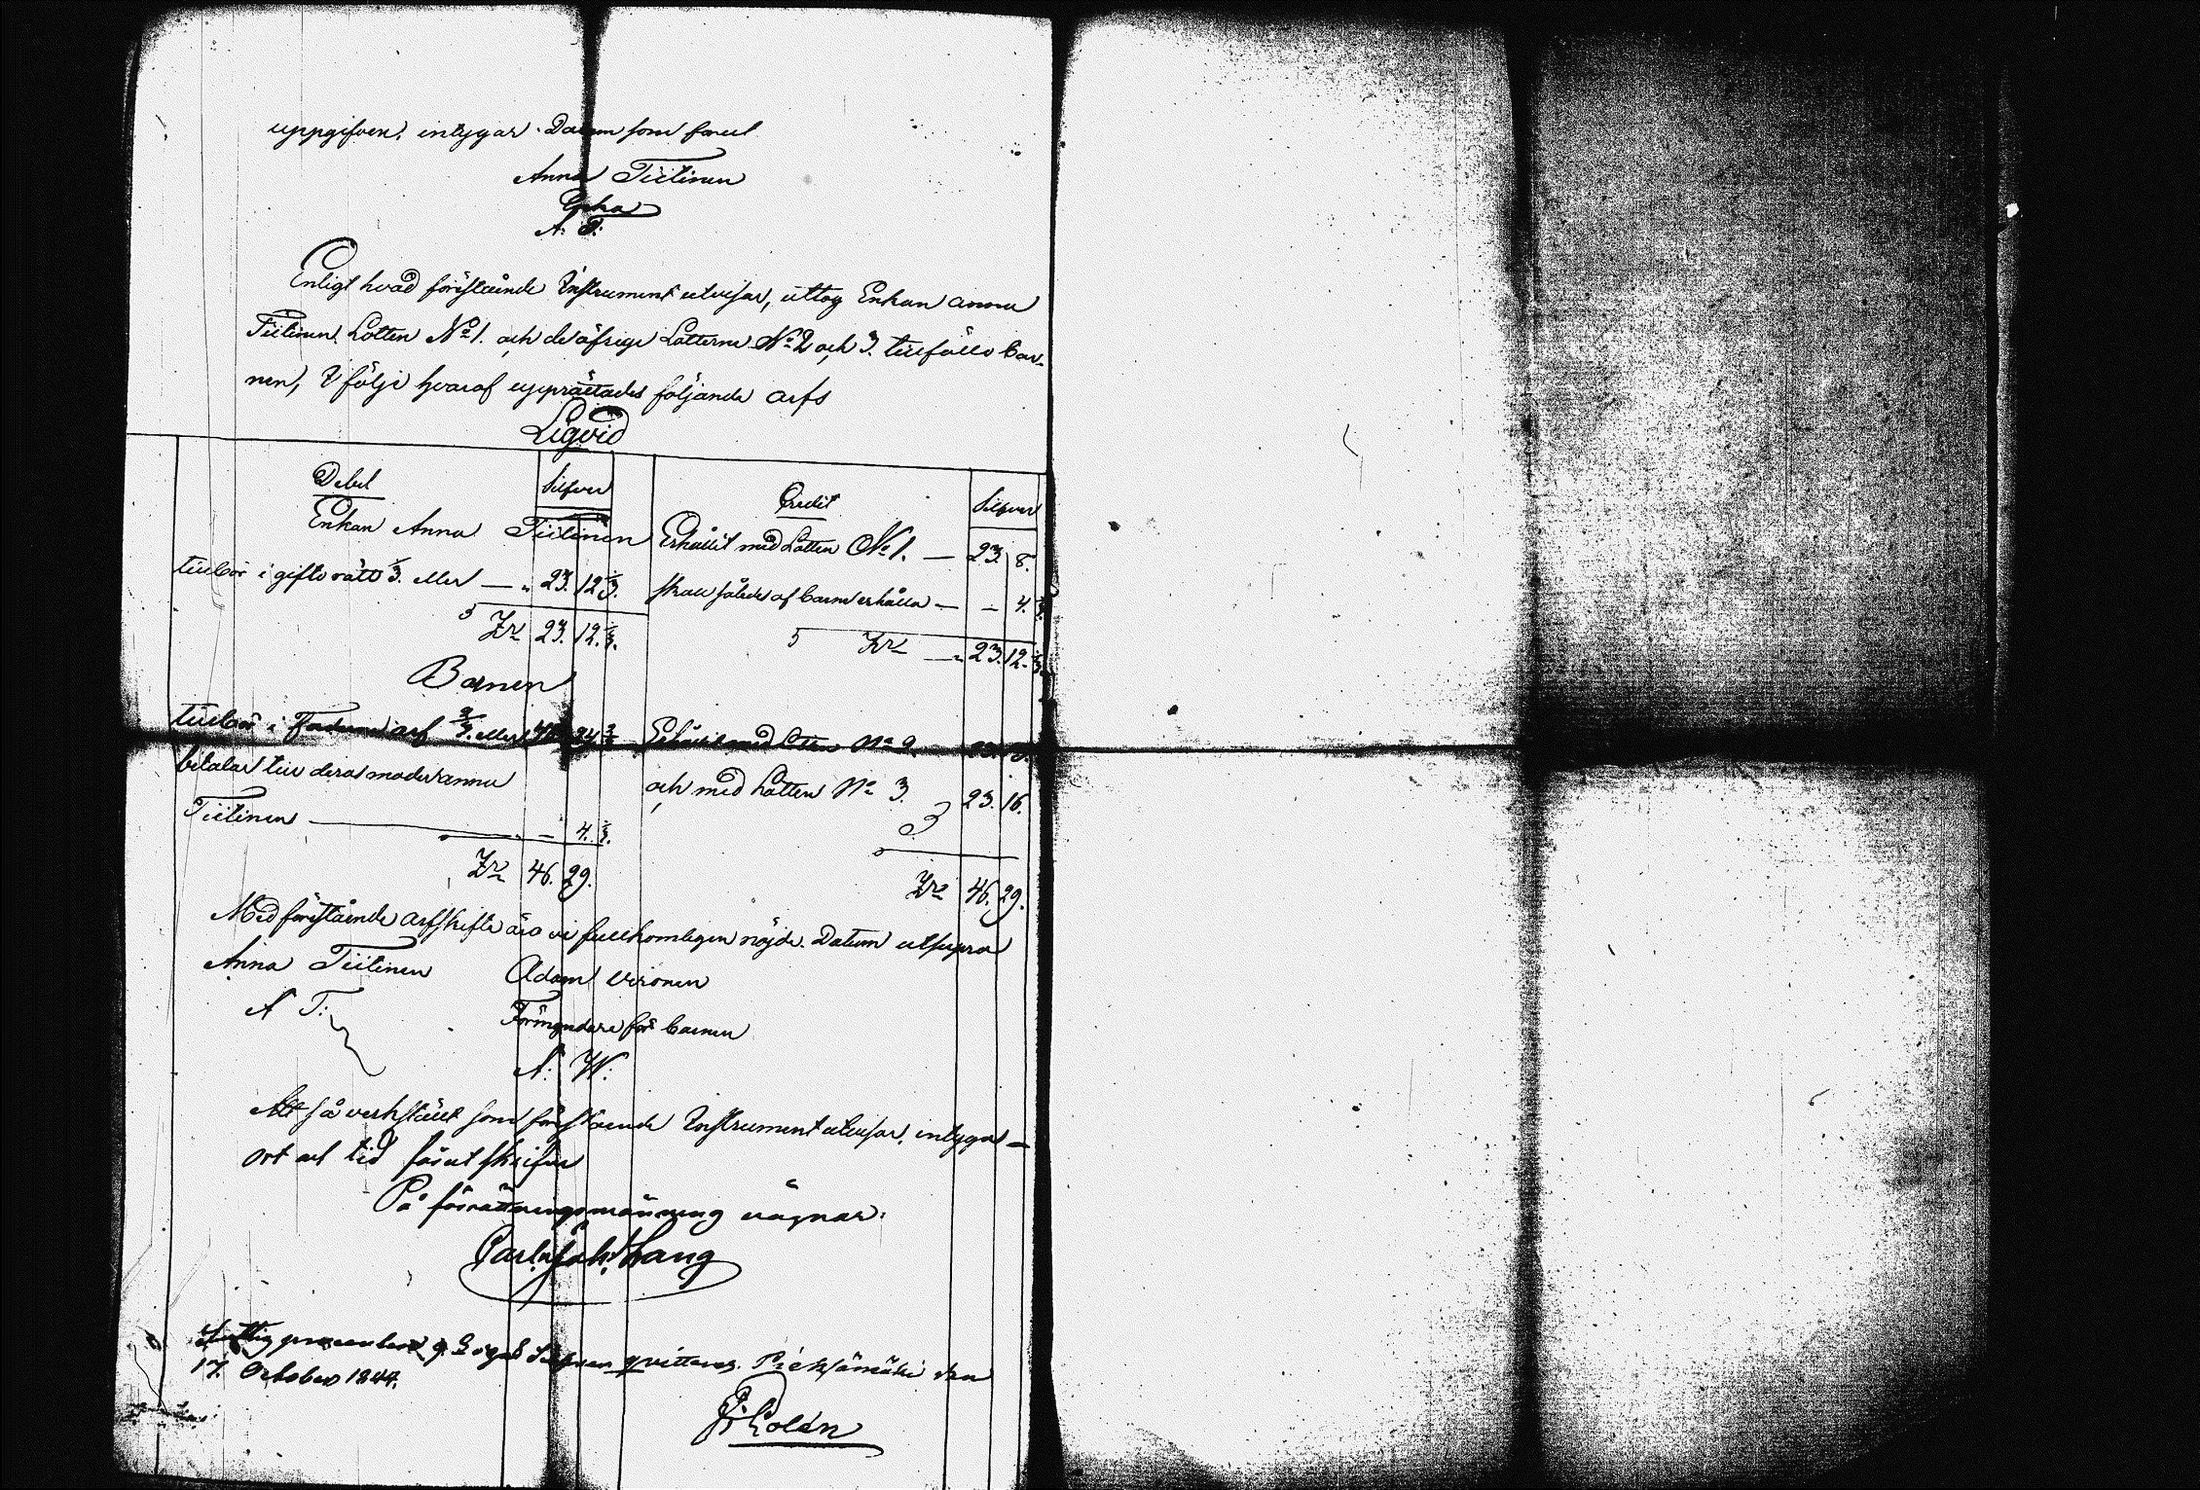 uppgifven, intygar. Datum som förut
Anna Tiitinen
Enka
A: T:
Enligt hvad förestående Instrument utvisar, uttog Enkan Anna
Tiitinen Lotten No 1. och de öfrige Lotterne No 2 och 3. tillföllo bar-
nen, I följe hvaraf upprättades följande arfs
Liqvid
Debet Silfver Credit Silfver
Enkan Anna Tiitinen Erhållit med Lotten No 1. — 23. 8.
tillkom i giftorätt 1/3. eller — 23. 12 1/3. skall således af barnen erhålla — – 4. 1/3.
23. 12. 1/3. 23. 12. 1/3.
Barnen
i Faderns arf 2/3. eller 24 2/3 Erhållit med Lotten No 2.
betalar till deras moder Anna och med Lotten No 3. 23. 16.
Tiitinen — – 4. 1/3.
46. 29. 46. 29.
Med förestående arfskifte äro vi fullkomligen nöjde. Datum utsupra
Anna Tiitinen Adam
A T: Förmyndare för barnen
A: W:
Att så verkstält som förestående Instrument utvisar, intygas
ort och tid förut skrifne
På förrättningsmännens vägnar:
Carl Joh: Lang
qvitteras. Pieksämäki den
17. October 1844.